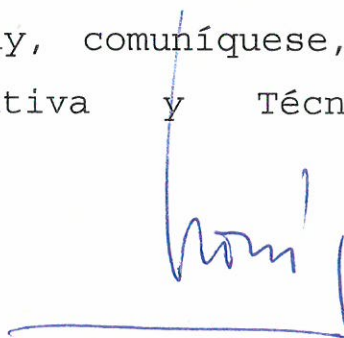 y, comuníquese,
tiva y Técn